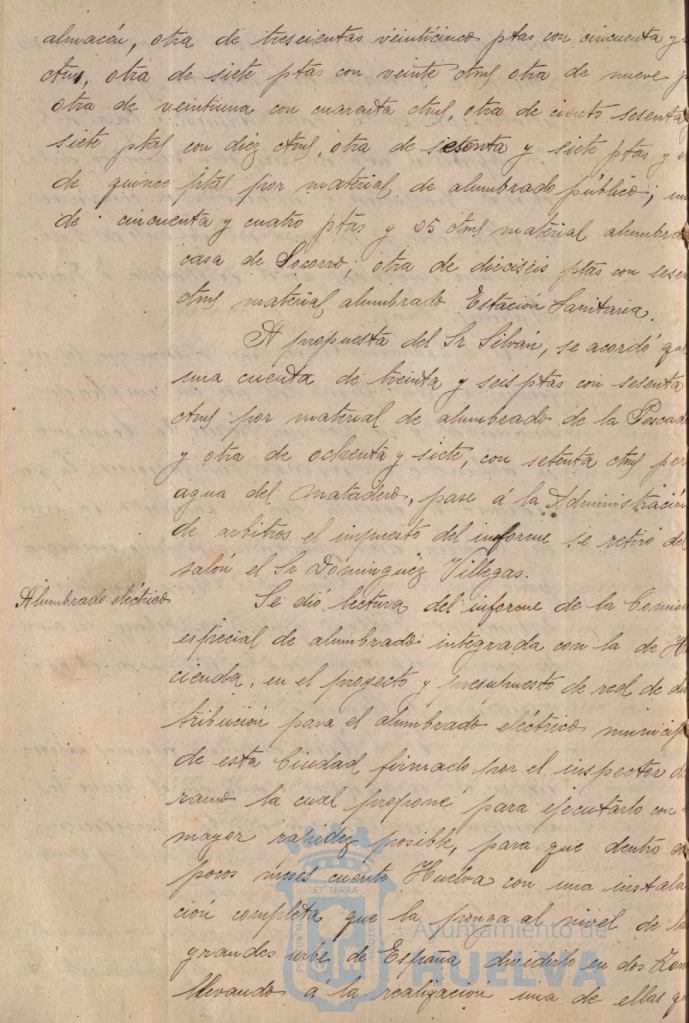 almacén, otra de trescientas veinticinco ptas con cincuenta y
ctms, otra de siete ptas con veinte ctms otra de nueve
otra de veintiuna con cuarenta ctms, otra de ciento sesenta
siete ptas con diez ctms, otra de setenta y siete ptas y
de quince ptas por material de alumbrado público;
de cincuenta y cuatro ptas y 05 ctms material alumbrado
casa de Socorro; otra de dieciséis ptas con sesen
ctms material alumbrado Estación Sanitaria.
A propuesta del Sr Silván, se acordó que
una cuenta de treinta y seis ptas con sesenta
ctms por material de alumbrado de la Pescad
y otra de ochenta y siete, con setenta ctms por
agua del matadero, pase á la Administración
de arbitros el impuesto del informe se retiró del
salón el Sr Dominguez Villegas.
Alumbrado eléctrico
Se dió lectura del informe de la Comisi
especial de alumbrado integrada con la de Ha
cienda, en el proyecto y presupuesto de red de dis
tribución para el alumbrado eléctrico municip
de esta Ciudad firmado por el inspector de
ramo la cual propone para ejecutarlo con
mayor rapidez posible, para que dentro de
pocos meses cuente Huelva con una instala
ción completa que la ponga al nivel de la
grandes urbe de España dividirlo en dos Zon
llevando á la realización una de ellas q
Ayuntamiento de
HUELVA